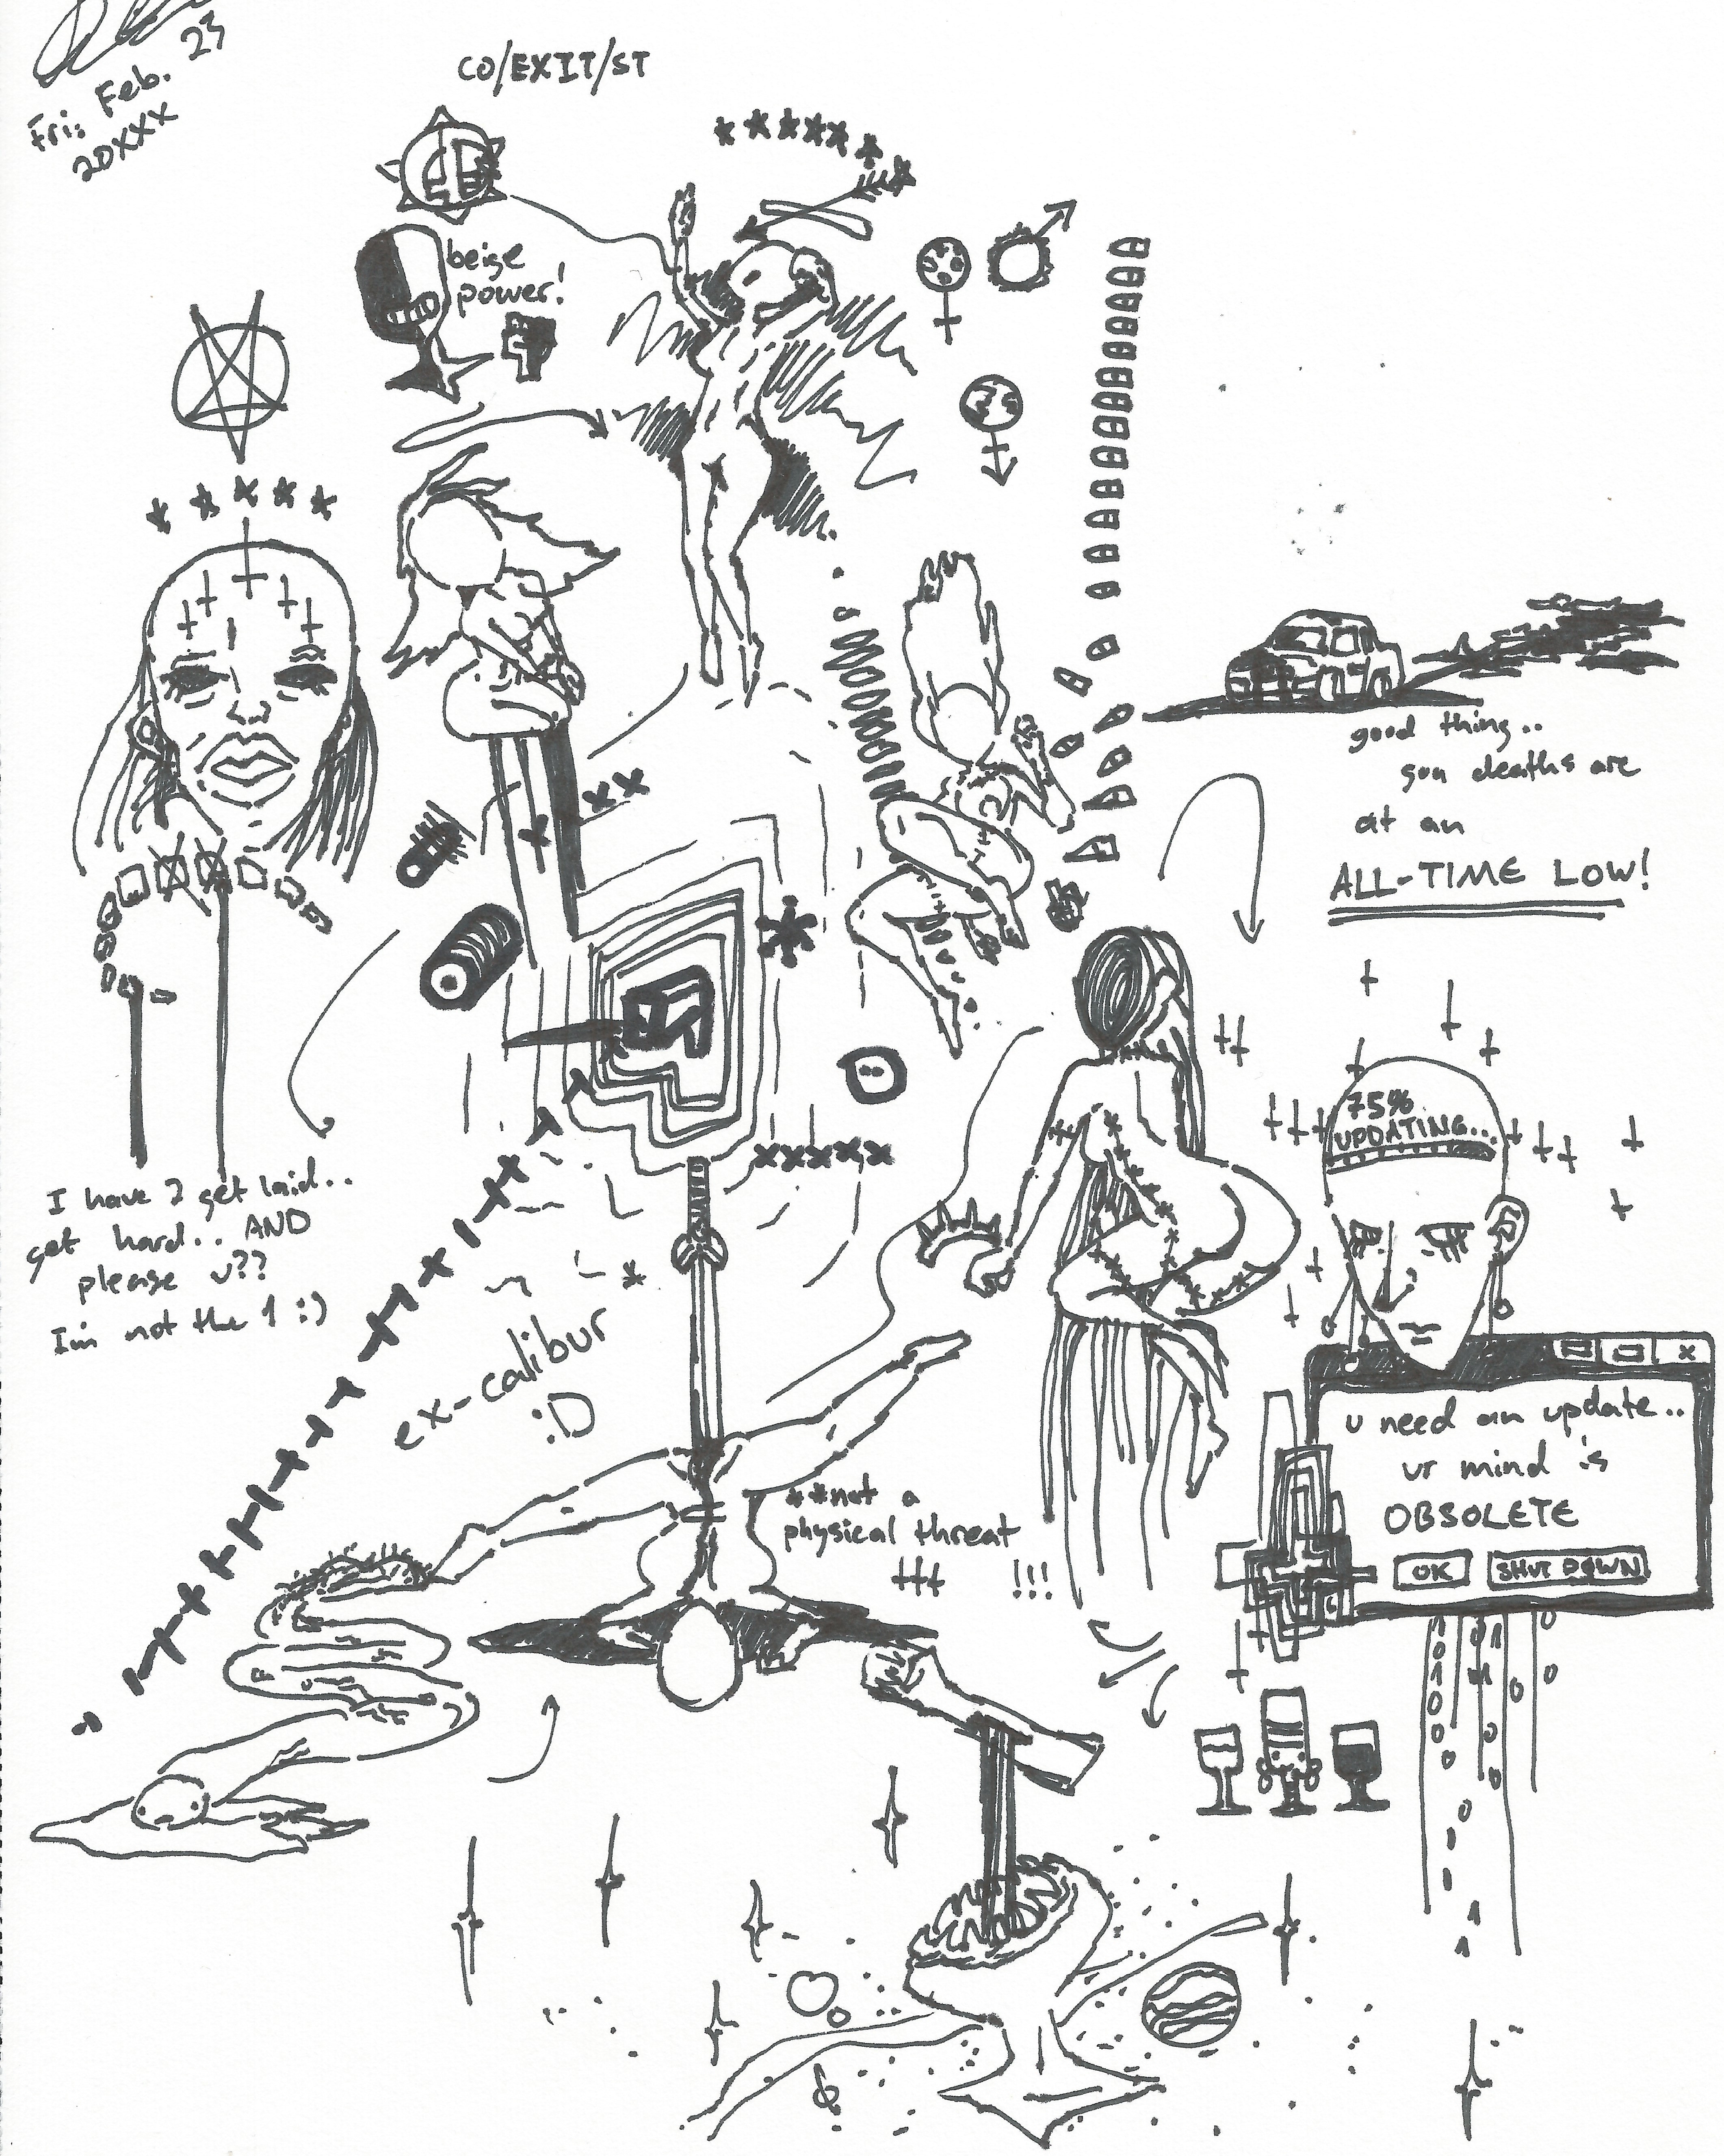 Fri. Feb. 23
20XXX
CO/EXIT/ST
beige
power!
good thing..
gun deaths are
at an
ALL-TIME LOW!
75%
UPDATING...
I have 2 get laid..
get hard.. AND
please u??
I'm not the 1 :)
ex-calibur
:D
**not a
physical threat
!!!
u need an update..
ur mind is
OBSOLETE
OK
SHUT DOWN